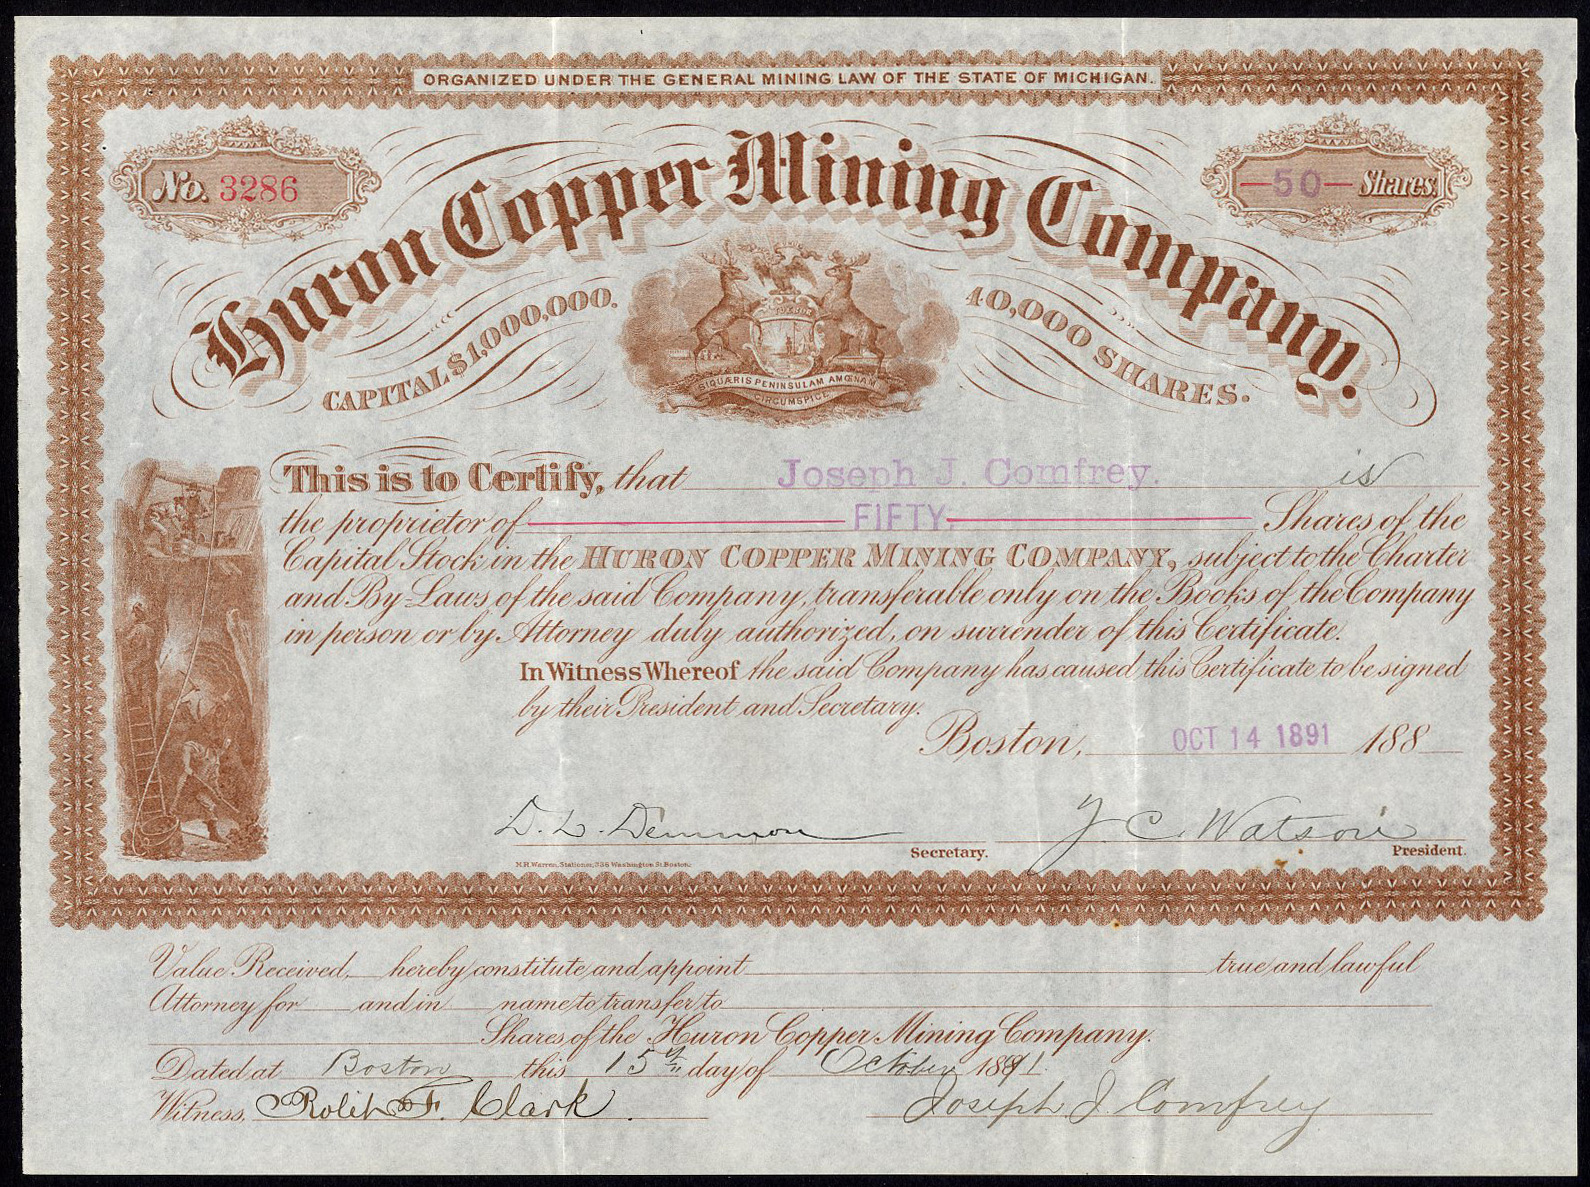 ORGANIZED UNDER THE GENERAL MINING LAW OF THE STATE OF MICHIGAN.
No. 3286
—50— Shares
Huron Copper Mining Company.
CAPITAL $1,000,000.
40,000 SHARES.
TUEBOR
SIQUÆRIS PENINSULAM AMŒNAM
CIRCUMSPICE
This is to Certify, that Joseph J. Comfrey. is
the proprietor of FIFTY Shares of the
Capital Stock in the HURON COPPER MINING COMPANY, subject to the Charter
and By-Laws of the said Company, transferable only on the Books of the Company
in person or by Attorney duly authorized, on surrender of this Certificate.
In Witness Whereof the said Company has caused this Certificate to be signed
by their President and Secretary.
Boston, OCT 14 1891 188
D. L. Demmon
J C. Watson
Secretary.
President.
M.R. Warren, Stationer, 336 Washington St. Boston.
Value Received, hereby constitute and appoint true and lawful
Attorney for and in name to transfer to
Shares of the Huron Copper Mining Company.
Dated at Boston this 15th day of October 1891.
Witness, F. Clark. Joseph J. Comfrey